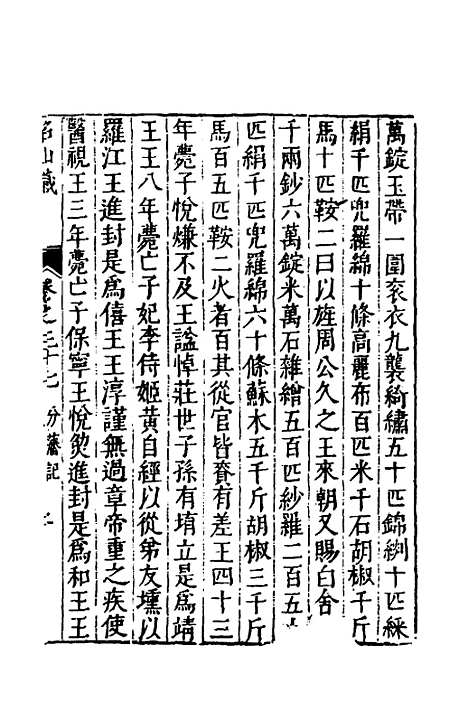 萬錠玉帶一圍衮衣九襲綺繡五十匹錦紵十匹綵
絹千匹兜羅綿十條高麗布百匹米千石胡椒千斤
馬十匹鞍二曰以旌周公久之王來朝又賜白金
千兩鈔六萬錠米萬石雜繒五百匹紗羅二百五
匹絹千匹兜羅綿六十條蘇木五千斤胡椒三千斤
馬百五匹鞍二火者百其從官皆賚有差王四十三
年薨子悅燫不及王謚悼莊世子孫有堉立是爲靖
王王八年薨亡子妃李侍姬黃自經以從弟友壎以
羅江王進封是爲僖王王淳謹無過章帝重之疾使
醫視王三年薨亡子保寧王悅㷂進封是爲和王王
名山藏 卷之三十七 分藩記